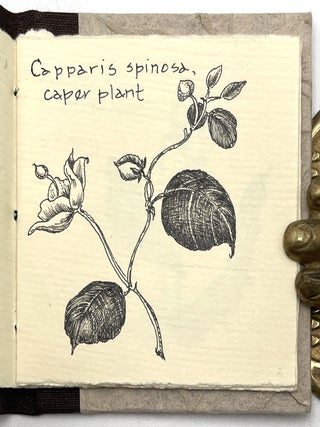 Capparis spinosa,
caper plant